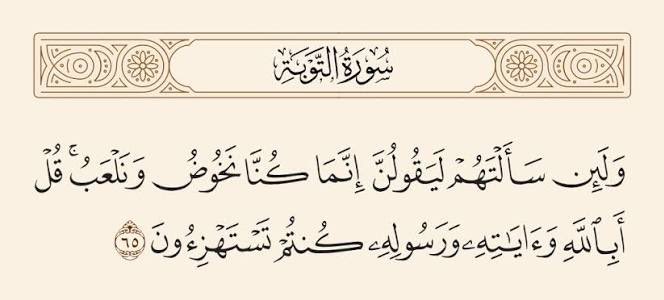 سُورَةُ التَّوْبَةِ
وَلَئِن سَأَلْتَهُمْ لَيَقُولُنَّ إِنَّمَا كُنَّا نَخُوضُ وَنَلْعَبُ ۚ قُلْ
أَبِٱللَّهِ وَءَايَـٰتِهِۦ وَرَسُولِهِۦ كُنتُمْ تَسْتَهْزِءُونَ ٦٥